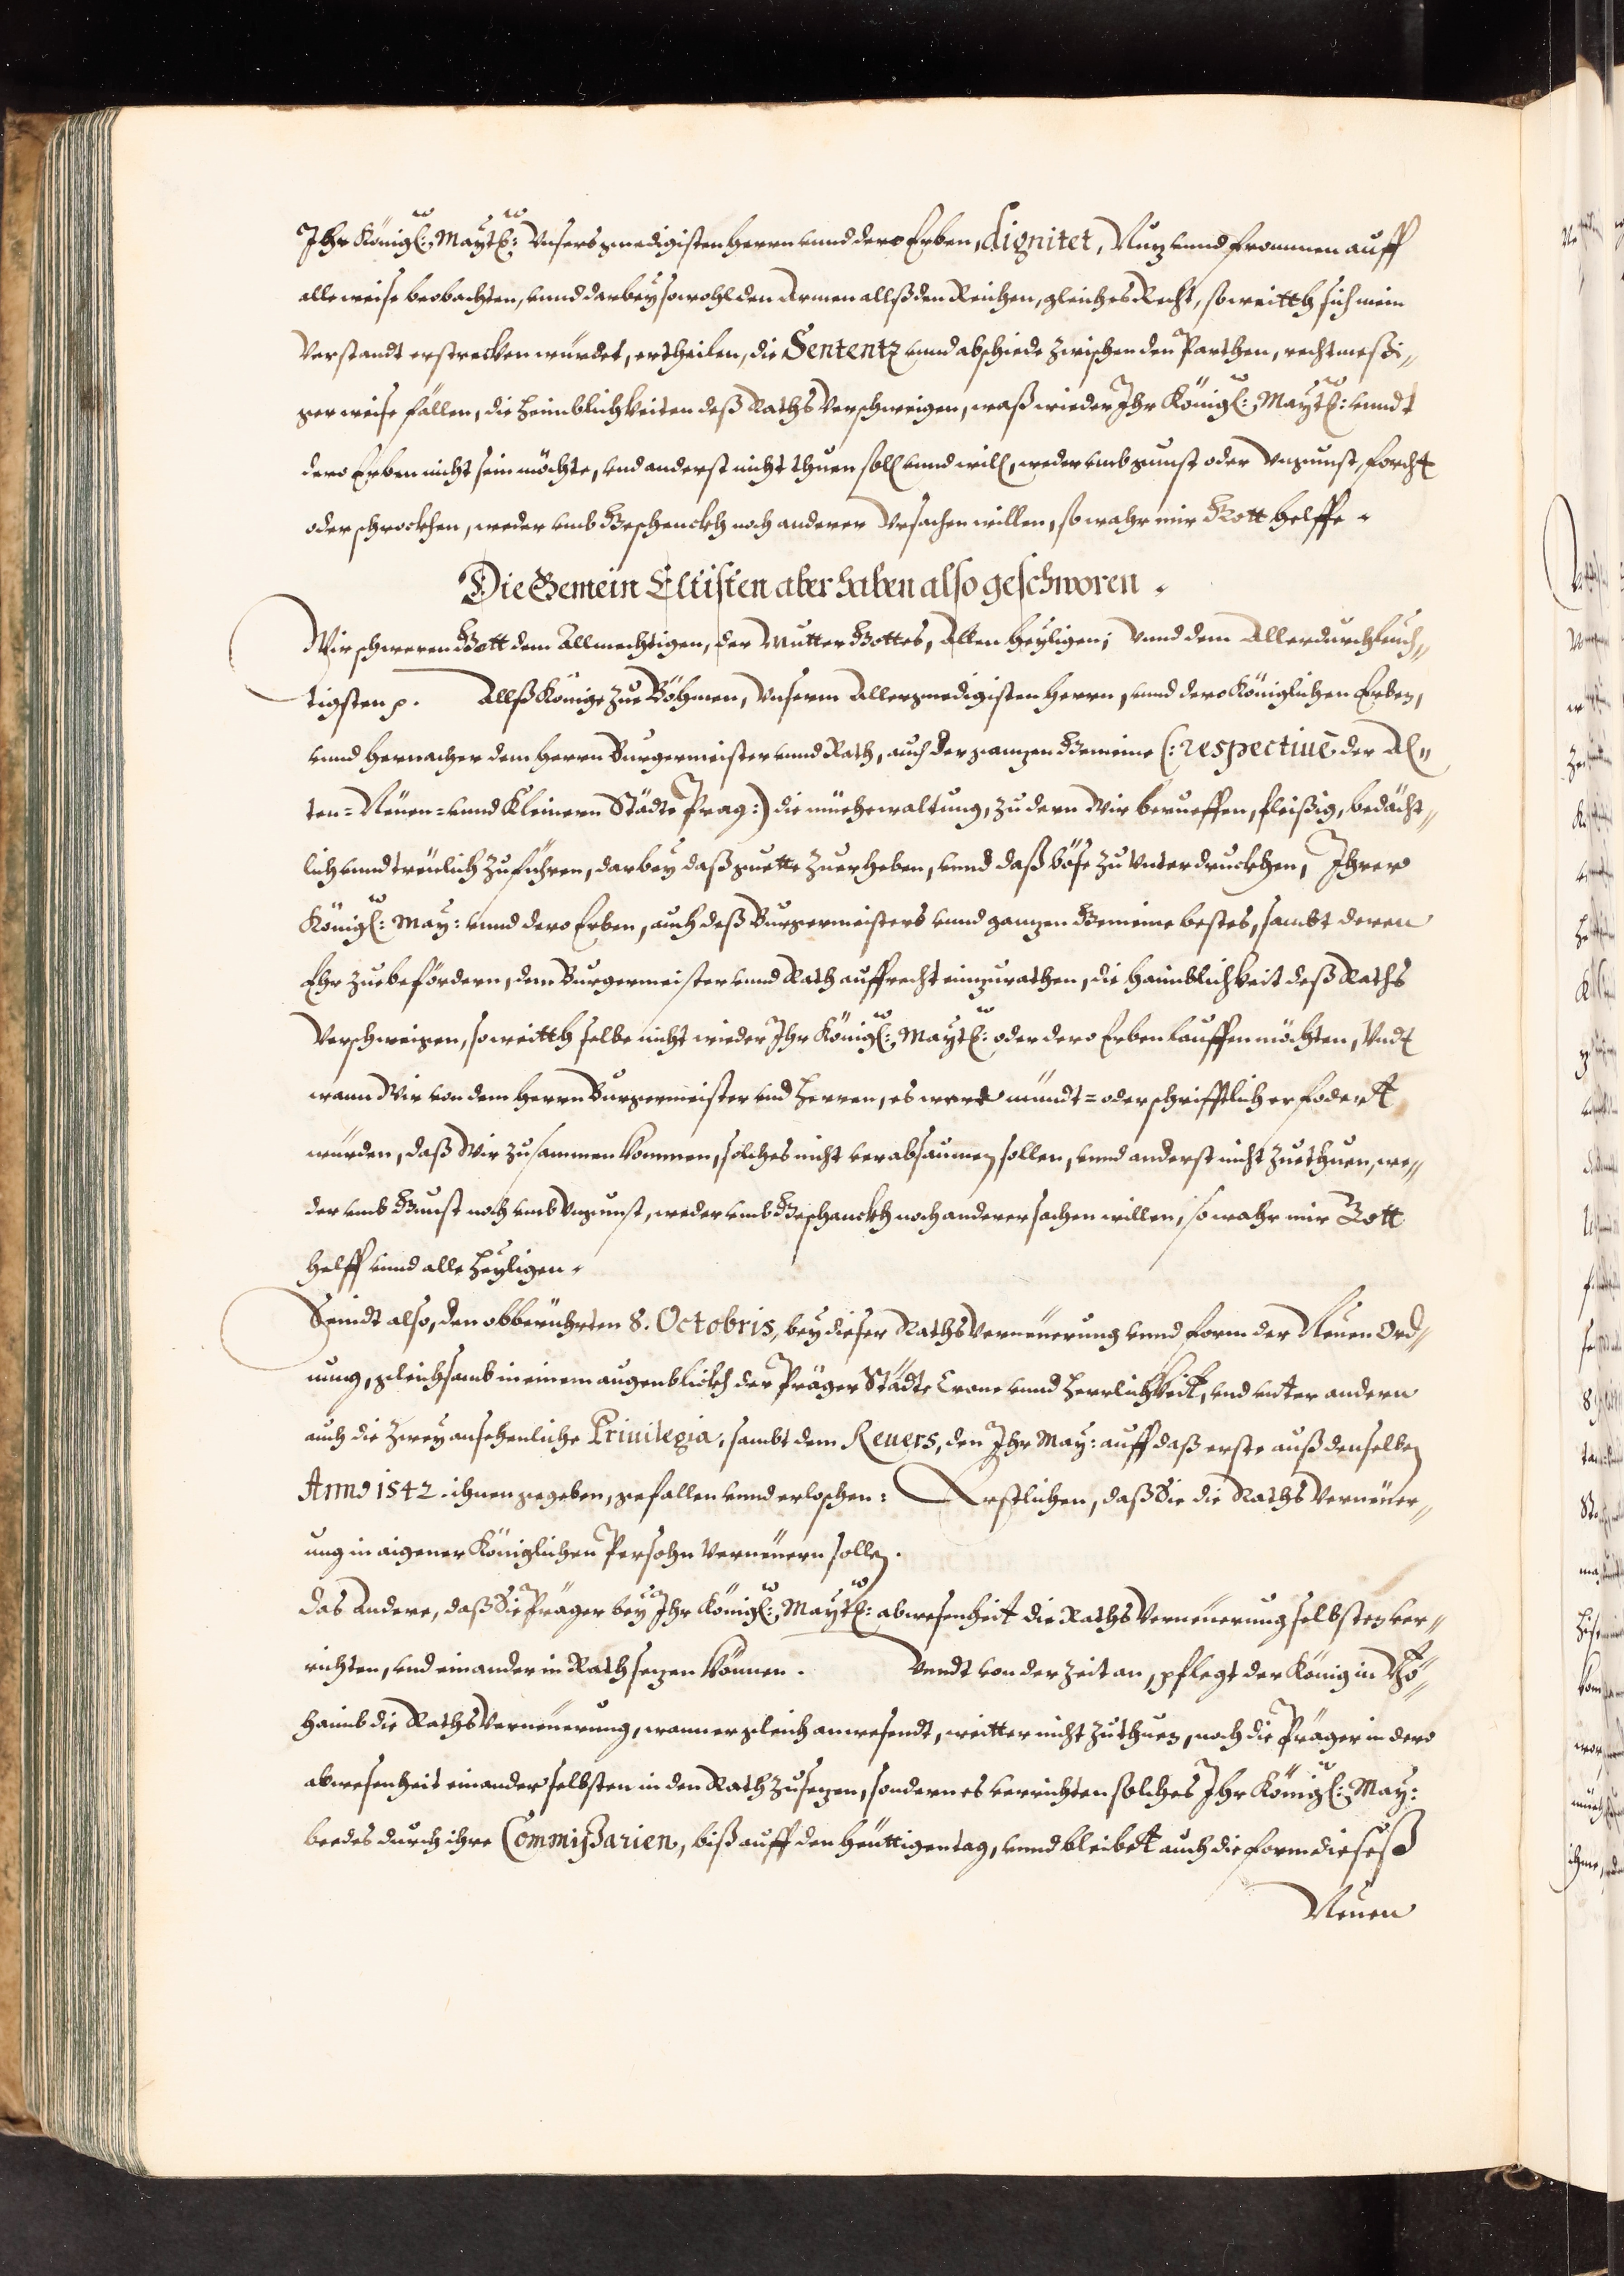 Ihr Königl: Maytt: Vnsers gnedigisten Herrn vnnd dero Erben, dignitet, Nuz vnnd frommen auff
alle weise beobachten, vnnd darbey sowohl den Armen allß den Reichen, gleiches Recht, so weitth sich mein
Verstandt erstrecken würdet, ertheilen, die Sententz vnnd abschiede zwischen den Parthen, rechtmeßi„
ger weise fällen, die heimblichkeiten deß Raths Verschweigen, waß wieder Ihr Königl: Maytt: vnndt
dero Erben nicht sein möchte, vnd anderst nicht thuen soll vnnd will, weder vmb gunst oder Vngunst, forcht
oder schrockhen, weder vmb Geschenckh noch anderer Vrsachen willen, so wahr mir Gott helffe.
Die Gemein Eltisten aber haben also geschworen.
Wir schweren Gott dem Allmechtigen, der Mutter Gottes, Allen heyligen; Vnnd dem Allerdurchleuch„
tigsten p. Allß Könige zue Böhmen, Vnserm Allergnedigisten Herrn, vnnd dero Königlichen Erben,
vnnd hernacher dem Herrn Burgermeister vnnd Rath, auch der ganzen Gemeine (: respectiuè der Al„
ten= Neüen= vnnd Kleinern Städte Prag:) die müehewaltung, zu deren Wir berueffen, fleißig, bedächt„
lich vnnd treülich zuführen, darbey daß guette zuerheben, vnnd daß böse zu Vnterdruckhen, Ihrer
Königl: May: vnnd dero Erben, auch deß Burgermeisters vnnd ganzen Gemeine bestes, sambt deren
Ehr zuebefördern, dem Burgermeister vnnd Rath auffrecht einzurathen, die haimblichkeit deß Raths
Verschweigen, so weitth selbe nicht wieder Ihr Königl: Maytt: oder dero Erben lauffen möchten, Vndt
wann Wir von dem Herrn Burgermeister vnd Herren, es werde mündt= oder schrifftlich erfodert
würden, daß Wir zusammen kommen, solches nicht verabsaumen sollen, vnnd anderst nicht zuethuen, we„
der vmb Gunst noch vmb Vngunst, weder vmb Geschanckh noch anderer sachen willen, so wahr mir Gott
helff vnnd alle Heyligen.
Seindt also, den obberührten 8. Octobris, bey dieser Raths Verneuerung vnnd form der Neuen Ord„
nung, gleichsamb in einem augenblickh der Präger Städte Crone vnnd Herrlichkeit, vnd vnter andern
auch die zwey ansehenliche Priuilegia, sambt dem Reuers, den Ihr May: auff daß erste auß denselben
Anno 1542. ihnen gegeben, gefallen vnnd erloschen: Erstlichen, daß Sie die Raths Verneuer„
ung in aigener Königlichen Persohn Verneuern sollen.
Das Andere, daß die Präger bey Ihr Königl: Maytt: abwesenheit die Raths Verneuerung selbsten ver„
richten, vnd einander in Rath sezen können. Vnndt von der Zeit an, pflegt der König in Bö„
haimb die Raths Verneuerung, wann er gleich anwesendt, weitter nicht zuthuen, noch die Präger in dero
abwesenheit einander selbsten in den Rath zusezen, sondern es verrichten solches Ihr Königl: May:
beedes durch ihre Commißarien, biß auff den heüttigen tag, vnnd bleibet auch die form dieseß
Neuen